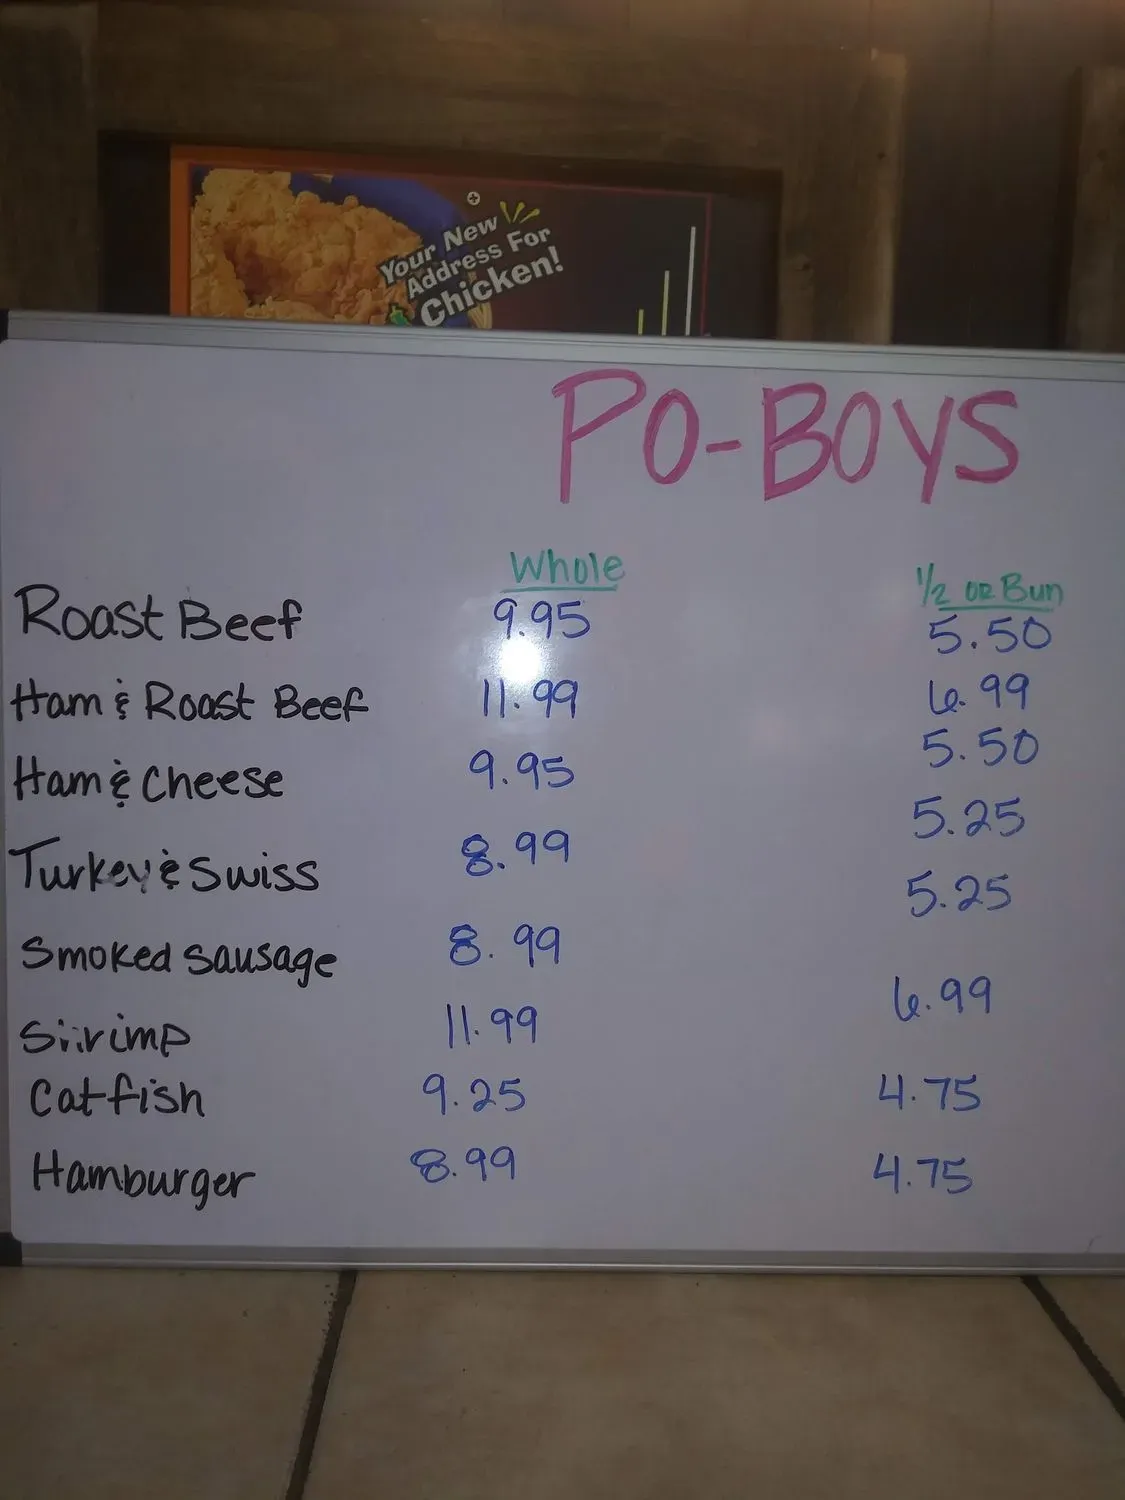 Your New
Address For
Chicken!
PO-BOYS
Whole 1/2 OR Bun
Roast Beef 9.95 5.50
Ham & Roast Beef 11.99 6.99
Ham & Cheese 9.95 5.50
Turkey & Swiss 8.99 5.25
Smoked Sausage 8.99 5.25
Shrimp 11.99 6.99
Catfish 9.25 4.75
Hamburger 8.99 4.75